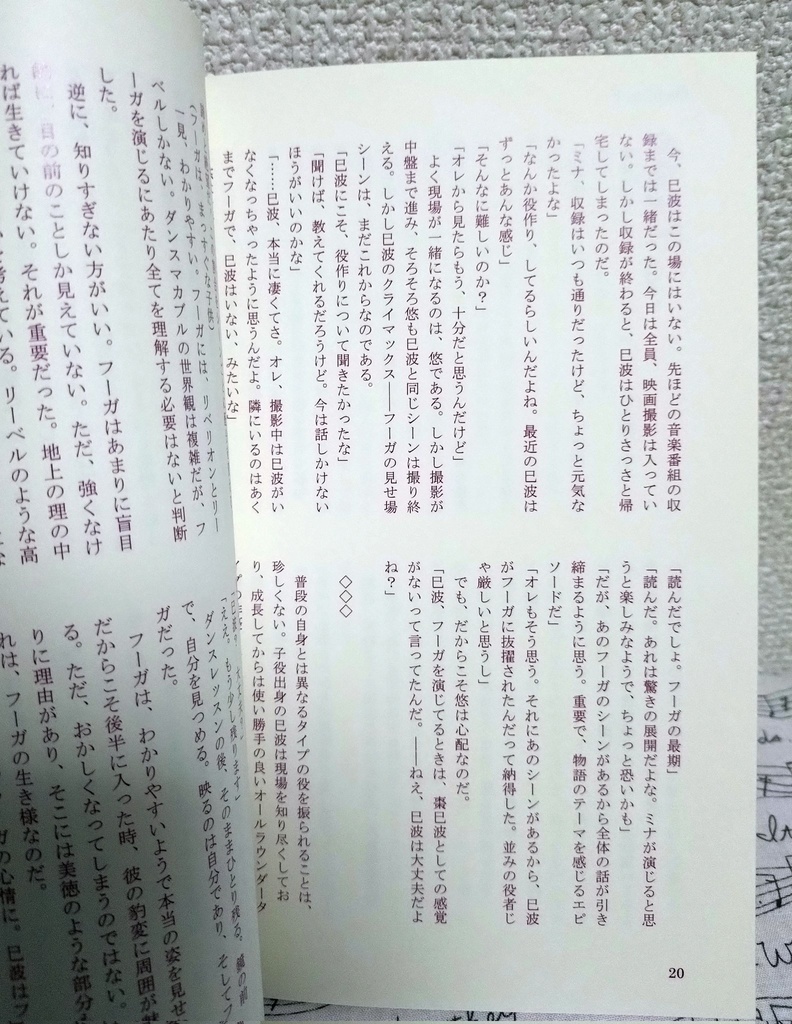 今、巳波はこの場にはいない。先ほどの音楽番組の収
録までは一緒だった。今日は全員、映画撮影は入ってい
ない。しかし収録が終わると、巳波はひとりさっさと帰
宅してしまったのだ。
「ミナ、収録はいつも通りだったけど、ちょっと元気な
かったよな」
「なんか役作り、してるらしいんだよね。最近の巳波は
ずっとあんな感じ」
「そんなに難しいのか?」
「オレから見たらもう、十分だと思うんだけど」
よく現場が一緒になるのは、悠である。しかし撮影が
中盤まで進み、そろそろ悠も巳波と同じシーンは撮り終
える。しかし巳波のクライマックス――フーガの見せ場
シーンは、まだこれからなのである。
「巳波にこそ、役作りについて聞きたかったな」
「聞けば、教えてくれるだろうけど。今は話しかけない
ほうがいいのかな」
「……巳波、本当に凄くてさ。オレ、撮影中は巳波がい
なくなっちゃったように思うんだよ。隣にいるのはあく
までフーガで、巳波はいない、みたいな」
「読んだでしょ。フーガの最期」
「読んだ。あれは驚きの展開だよな。ミナが演じると思
うと楽しみなようで、ちょっと恐いかも」
「だが、あのフーガのシーンがあるから全体の話が引き
締まるように思う。重要で、物語のテーマを感じるエピ
ソードだ」
「オレもそう思う。それにあのシーンがあるから、巳波
がフーガに抜擢されたんだって納得した。並みの役者じ
ゃ厳しいと思うし」
でも、だからこそ悠は心配なのだ。
「巳波、フーガを演じてるときは、棗巳波としての感覚
がないって言ってたんだ。――ねえ、巳波は大丈夫だよ
ね?」
◇◇◇
普段の自身とは異なるタイプの役を振られることは、
珍しくない。子役出身の巳波は現場を知り尽くしてお
り、成長してからは使い勝手の良いオールラウンダータ
20
(フーガは、まっすぐな子供)
一見、わかりやすい。フーガには、リベリオンとリー
ベルしかない。ダンスマカブルの世界観は複雑だが、フ
ーガを演じるにあたり全てを理解する必要はないと判断
した。
逆に、知りすぎない方がいい。フーガはあまりに盲目
目の前のことしか見えていない。ただ、強くなけ
れば生きていけない。それが重要だった。地上の理の中
考えている。リーベルのような高
「ええ。もう少し残ります」
ダンスレッスンの後、そのままひとり残る。鏡の前
で、自分を見つめる。映るのは自分であり、そしてフ
ガだった。
フーガは、わかりやすいようで本当の姿を見せ
だからこそ後半に入った時、彼の豹変に周囲が
る。ただ、おかしくなってしまうのではない。
りに理由があり、そこには美徳のような部分
れは、フーガの生き様なのだ。
の心情に。巳波はフ